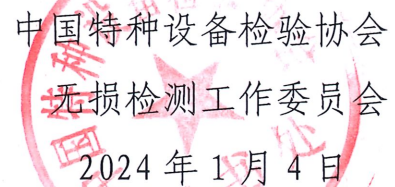 中国特种设备检验协会
无损检测工作委员会
2024年1月4日